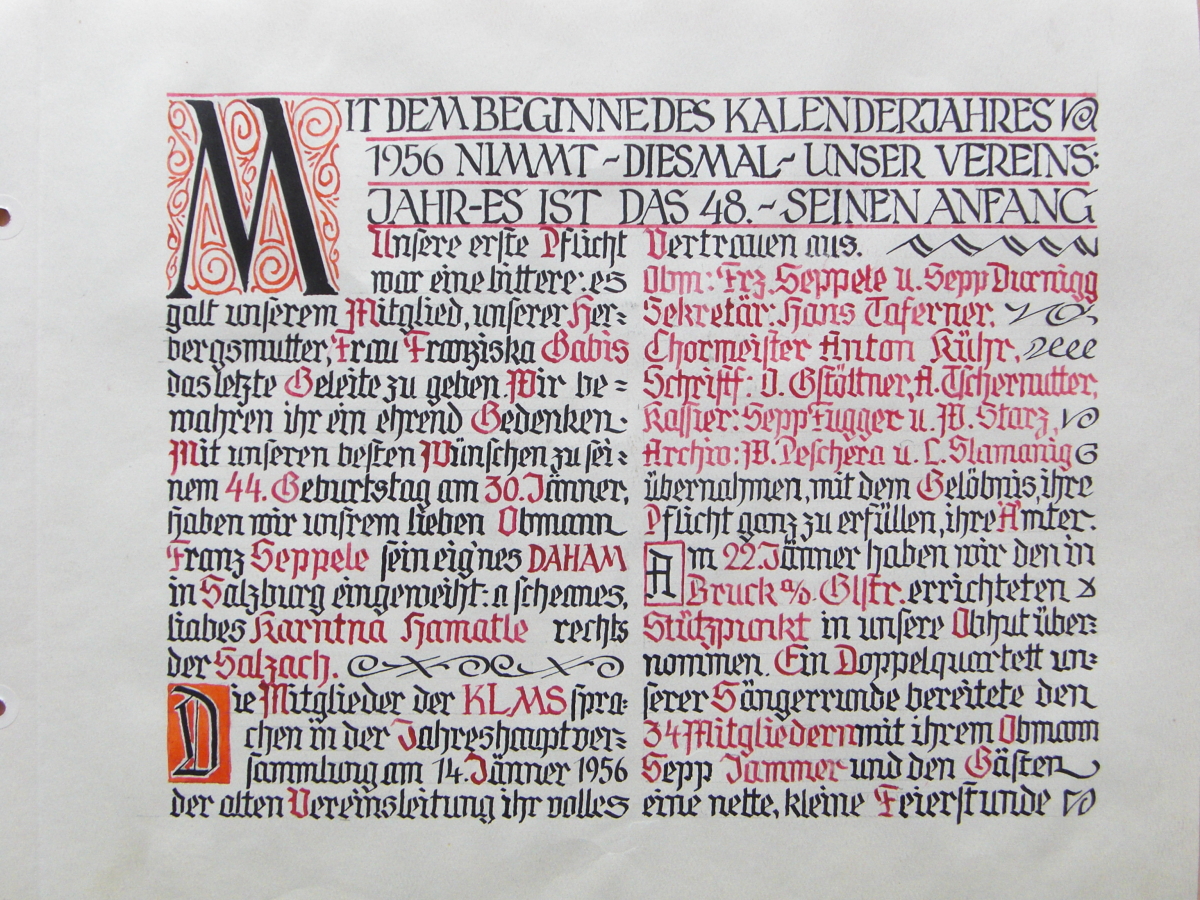 MIT DEM BEGINNE DES KALENDERJAHRES
1956 NIMMT ~ DIESMAL ~ UNSER VEREINS:
JAHR - ES IST DAS 48. ~ SEINEN ANFANG
Unsere erste Pflicht
war eine bittere: es
galt unserem Mitglied, unserer Her=
bergsmutter, Frau Franziska Gabis
das letzte Geleite zu geben. Wir be=
wahren ihr ein ehrend Gedenken.
Mit unseren besten Wünschen zu sei=
nem 44. Geburtstag am 30. Jänner,
haben wir unsrem lieben Obmann
Franz Seppele sein eignes DAHAM
in Salzburg eingeweiht: a scheanes,
liabes Karntna Hamatle rechts
der Salzach.
Die Mitglieder der KLMS spra=
chen in der Jahreshauptver=
sammlung am 14. Jänner 1956
der alten Vereinsleitung ihr volles
Vertrauen aus.
Obm: Frz. Seppele u. Sepp Durnigg
Sekretär: Hans Taferner.
Chormeister Anton Kühr,
Schriff: O. Gstöttner, A. Tschernutter,
Kassier: Sepp Fugger u. W. Starz,
Archiv: W. Peschera u. L. Slamanig
übernahmen, mit dem Gelöbnis, ihre
Pflicht ganz zu erfüllen, ihre Ämter.
Am 22. Jänner haben wir den in
Bruck a/d. Glstr. errichteten
Stützpunkt in unsere Obhut über=
nommen. Ein Doppelquartett un=
serer Sängerrunde bereitete den
34 Mitgliedern mit ihrem Obmann
Sepp Jammer und den Gästen
eine nette, kleine Feierstunde